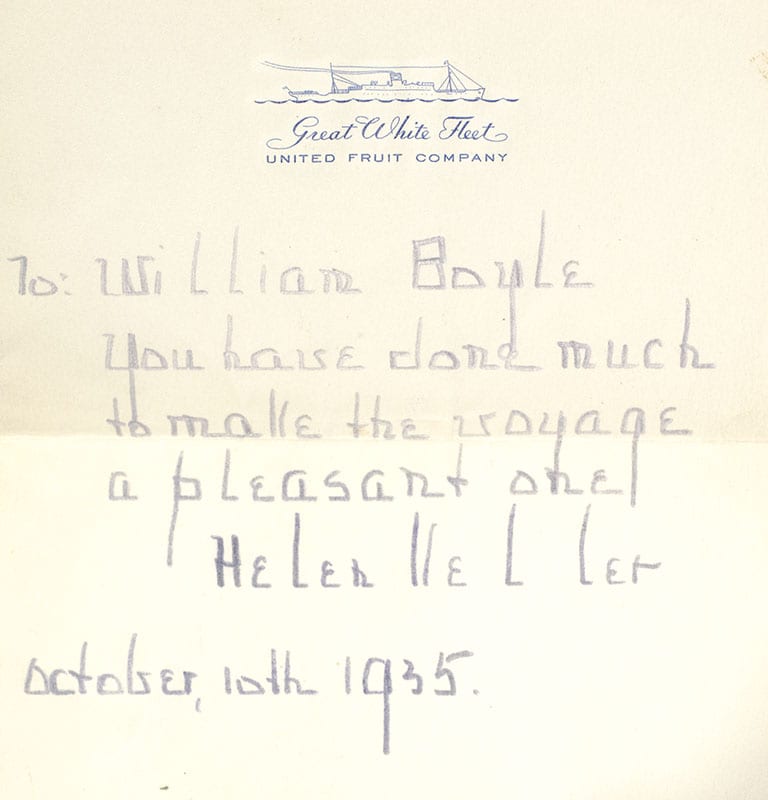 Great White Fleet
UNITED FRUIT COMPANY
To: William Boyle
You have done much
to make the voyage
a pleasant one!
Helen Keller
October, 10th 1935.